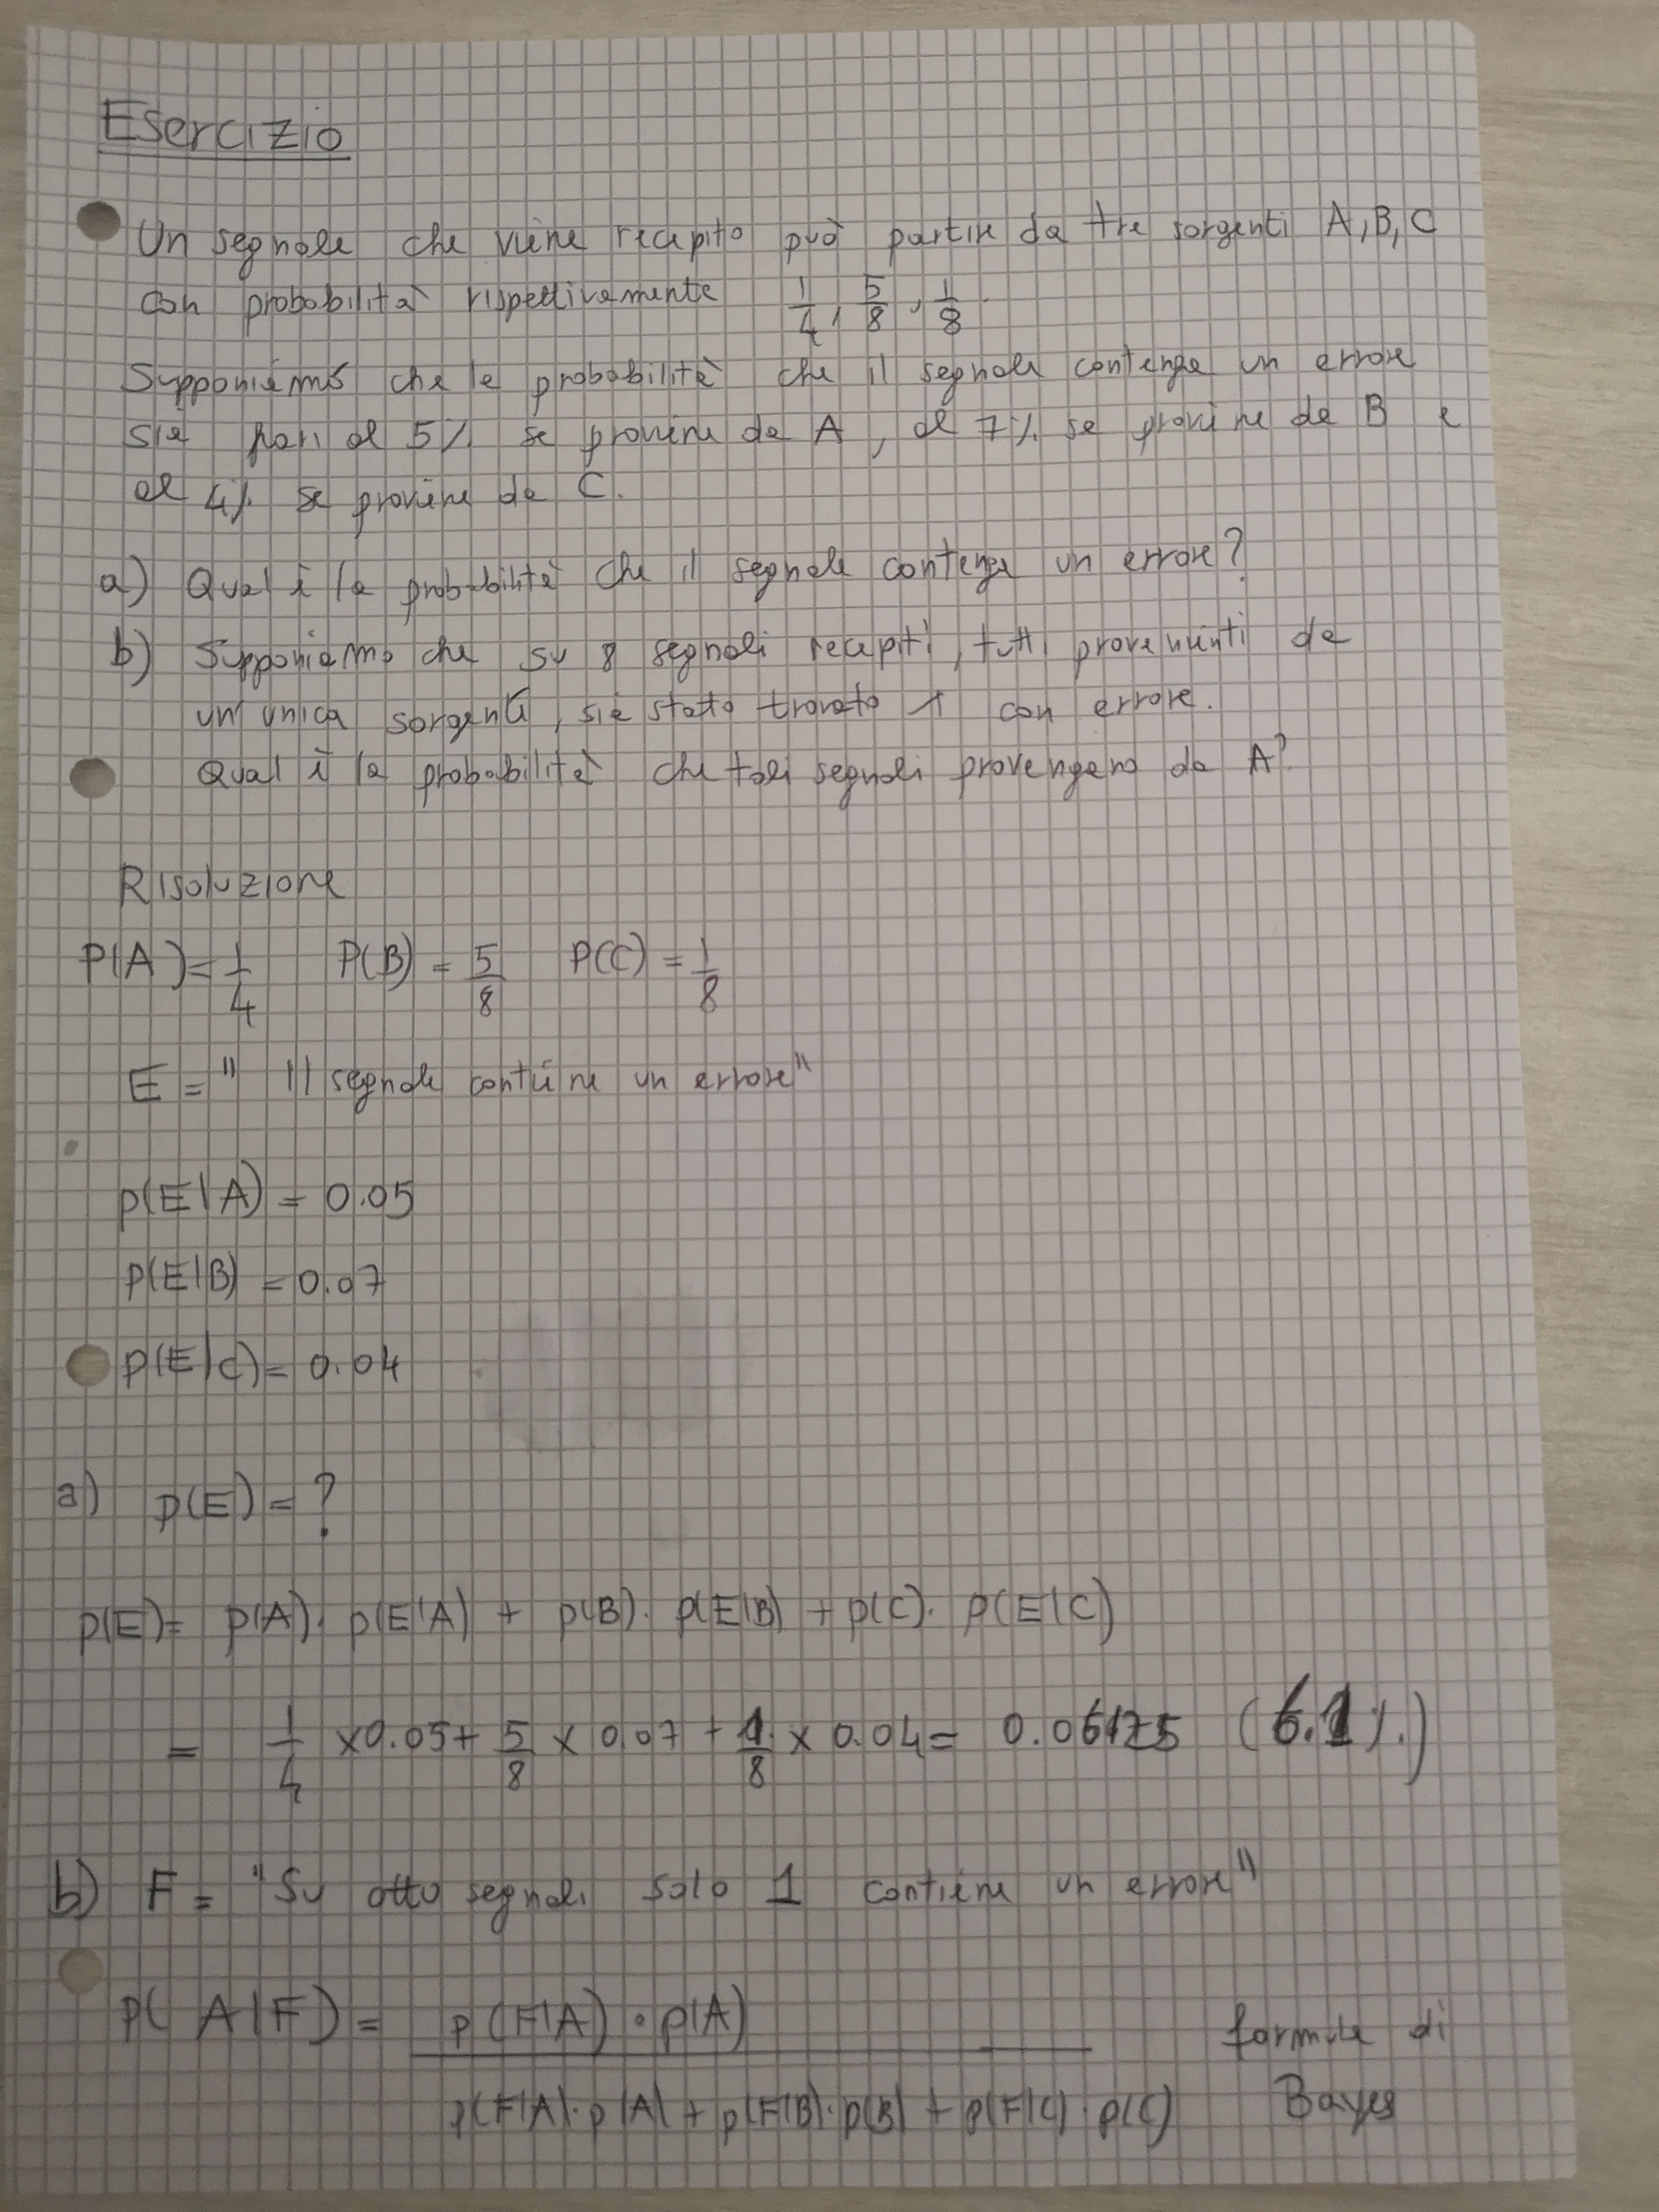 Esercizio
Un segnale che viene recepito può partire da tre sorgenti A, B, C
con probabilità rispettivamente 1/4, 5/8, 1/8.
Supponiamo che la probabilità che il segnale contenga un errore
sia pari al 5% se proviene da A, al 7% se proviene da B e
al 4% se proviene da C.
a) Qual è la probabilità che il segnale contenga un errore?
b) Supponiamo che su 8 segnali recepiti, tutti provenienti da
un'unica sorgente, sia stato trovato 1 con errore.
Qual è la probabilità che tali segnali provengano da A?
Risoluzione
P(A) = 1/4 P(B) = 5/8 P(C) = 1/8
E = " Il segnale contiene un errore"
p(E|A) = 0.05
p(E|B) = 0.07
p(E|C) = 0.04
a) p(E) = ?
p(E) = p(A) · p(E|A) + p(B) · p(E|B) + p(C) · p(E|C)
= 1/4 × 0.05 + 5/8 × 0.07 + 1/8 × 0.04 = 0.06125 (6.1%)
b) F = "Su otto segnali solo 1 contiene un errore"
p( A|F ) = p(F|A) · p(A) / p(F|A) · p(A) + p(F|B) · p(B) + p(F|C) · p(C) formula di
Bayes